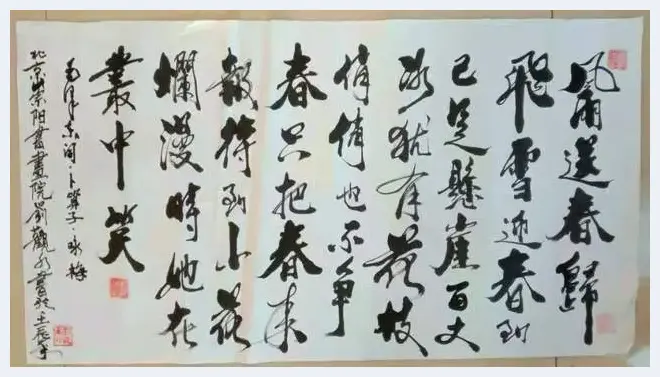 風雨送春歸
飛雪迎春到
已是懸崖百丈
冰猶有花枝
俏俏也不爭
春只把春來
報待到山花
爛漫時她在
叢中笑
毛澤东詞·卜算子·咏梅
北京崇阳書畫院劉觀水書於壬辰年